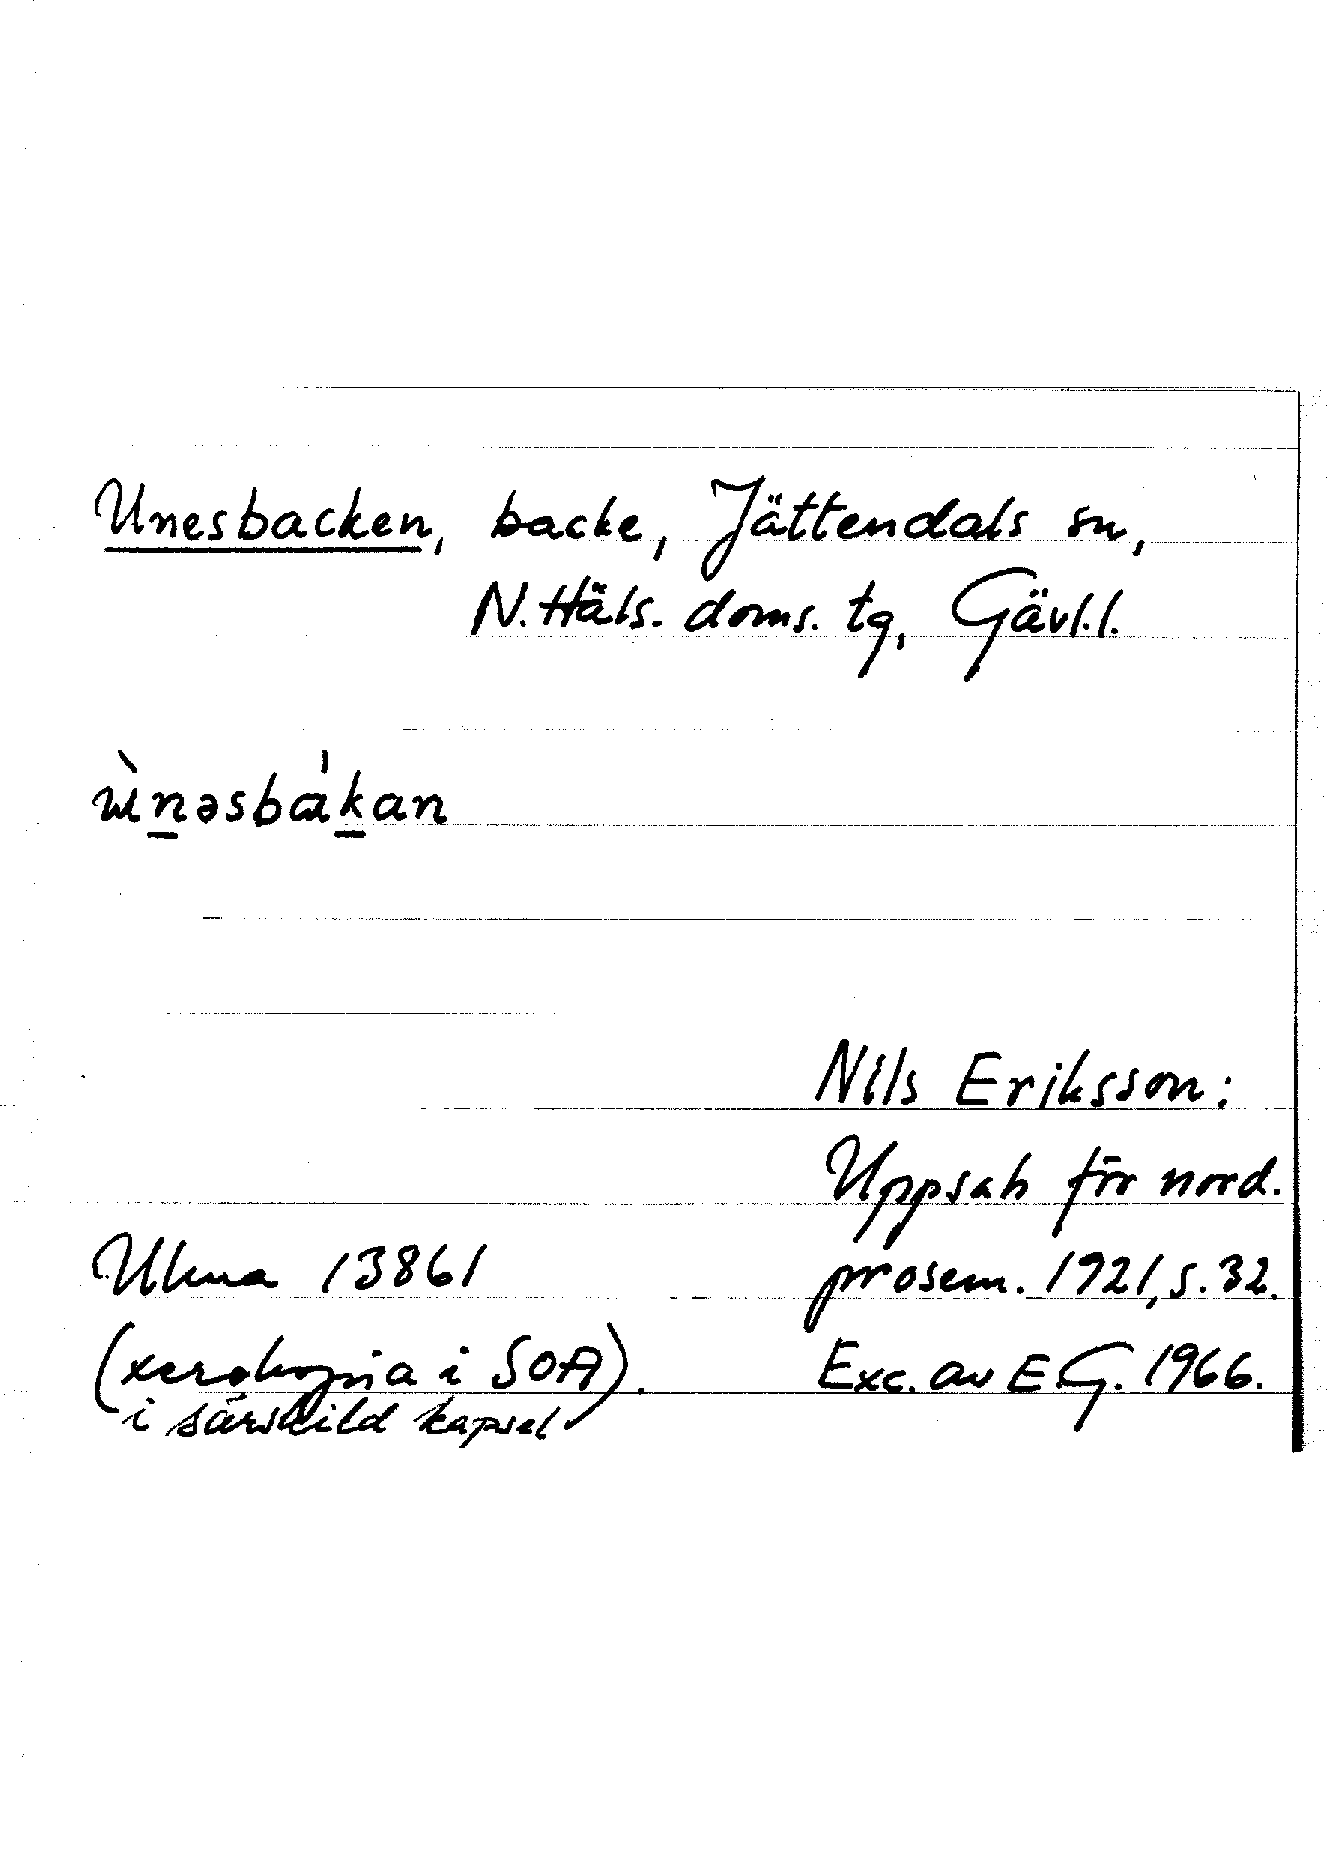 Unesbacken, backe, Jättendals sn,
N. Häls. doms. tg, Gävl. l.
ɯ̀nəsbák​an
Nils Eriksson:
Uppsats för nord.
prosem. 1921, s. 32.
Ulma 13861
(xerokopia i SOA).
i särskild kapsel
Exc. av E.G. 1966.